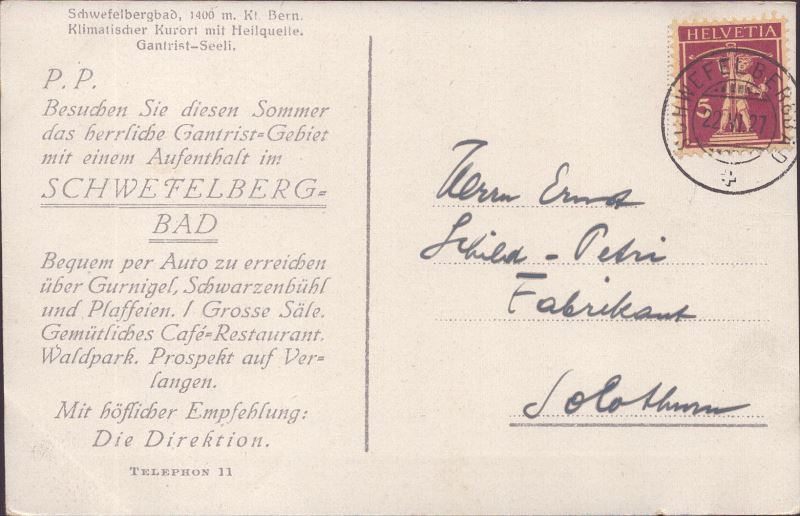 Schwefelbergbad, 1400 m. Kt. Bern.
Klimatischer Kurort mit Heilquelle.
Gantrist-Seeli.
P. P.
Besuchen Sie diesen Sommer
das herrliche Gantrist=Gebiet
mit einem Aufenthalt im
SCHWEFELBERG=
BAD
Bequem per Auto zu erreichen
über Gurnigel, Schwarzenbühl
und Plaffeien. / Grosse Säle.
Gemütliches Café=Restaurant.
Waldpark. Prospekt auf Ver=
langen.
Mit höflicher Empfehlung:
Die Direktion.
TELEPHON 11
HELVETIA
5
SCHWEFELBERGBAD
22.VI.27
Herrn Ernst
Schild - Petri
Fabrikant
Solothurn